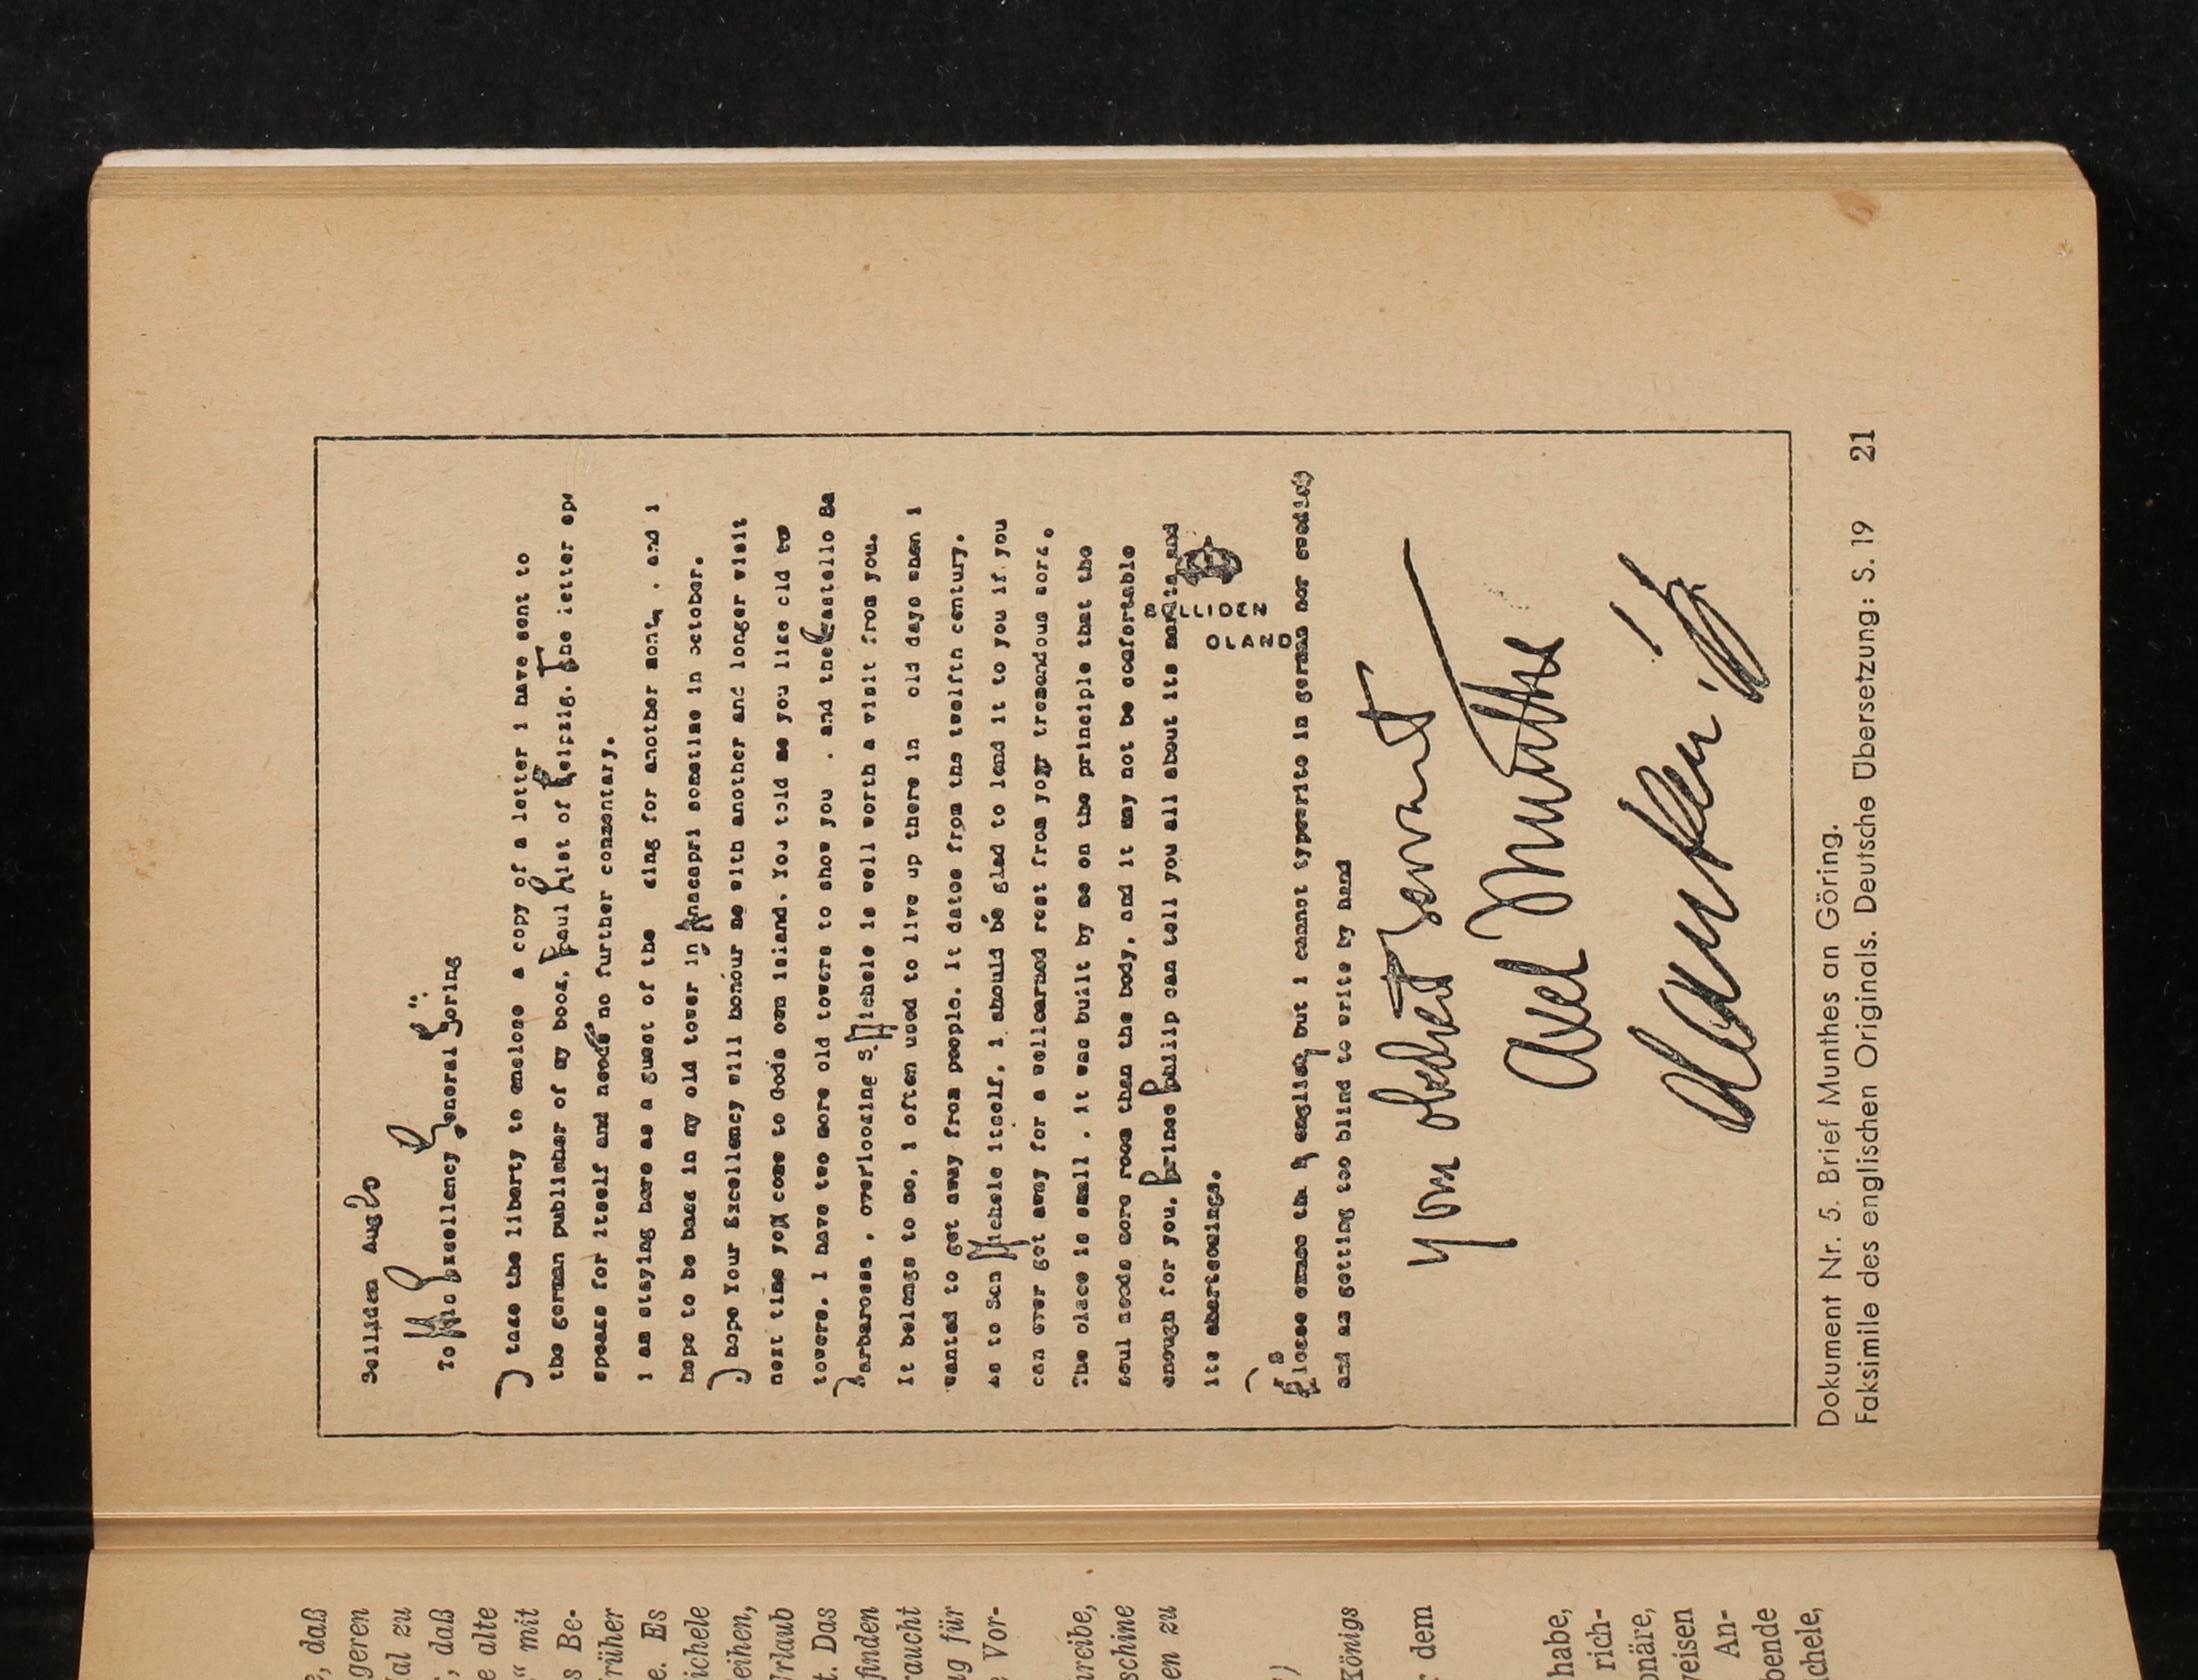 Solliden Aug 20
To His Excellency General Göring
I take the liberty to enclose a copy of a letter i have sent to
the german publisher of my book, Paul List of Leipzig. The letter
speaks for itself and needs no further commentary.
i am staying here as a guest of the king for another and i
hope to be back in my old tower in Anacapri sometime in october.
I hope Your Excellency will honour me with another and longer visit
next time you come to Gods own island. You told me you like old
towers. I have two more old towers to show you . and the Castello Ba
Barbarossa , overlooking S. Michele is well worth a visit from you.
It belongs to me, i often used to live up there in old days when i
wanted to get away from people. It dates from the twelfth century.
As to San Michele itself, i should be glad to lend it to you if you
can ever get away for a wellearned rest from your tremendous work.
The place is small . it was built by me on the principle that the
soul needs more room than the body, and it may not be comfortable
enough for you. Prince Philip can tell you all about its merits and
its shortcomings.
SOLLIDEN
OLAND
Please excuse english but i cannot typewrite in german nor swedish
and am getting too blind to write by hand
Your obedient servant
Axel Munthe
Dokument Nr. 5. Brief Munthes an Göring.
Faksimile des englischen Originals. Deutsche Übersetzung: S. 19 21
daß
geren
al zu
daß
alte
“ mit
Be-
rüher
e. Es
ichele
eihen,
Urlaub
t. Das
finden
raucht
g für
Vor-
reibe,
schine
en zu
)
Königs
dem
habe,
rich-
onäre,
weisen
An-
bende
chele,